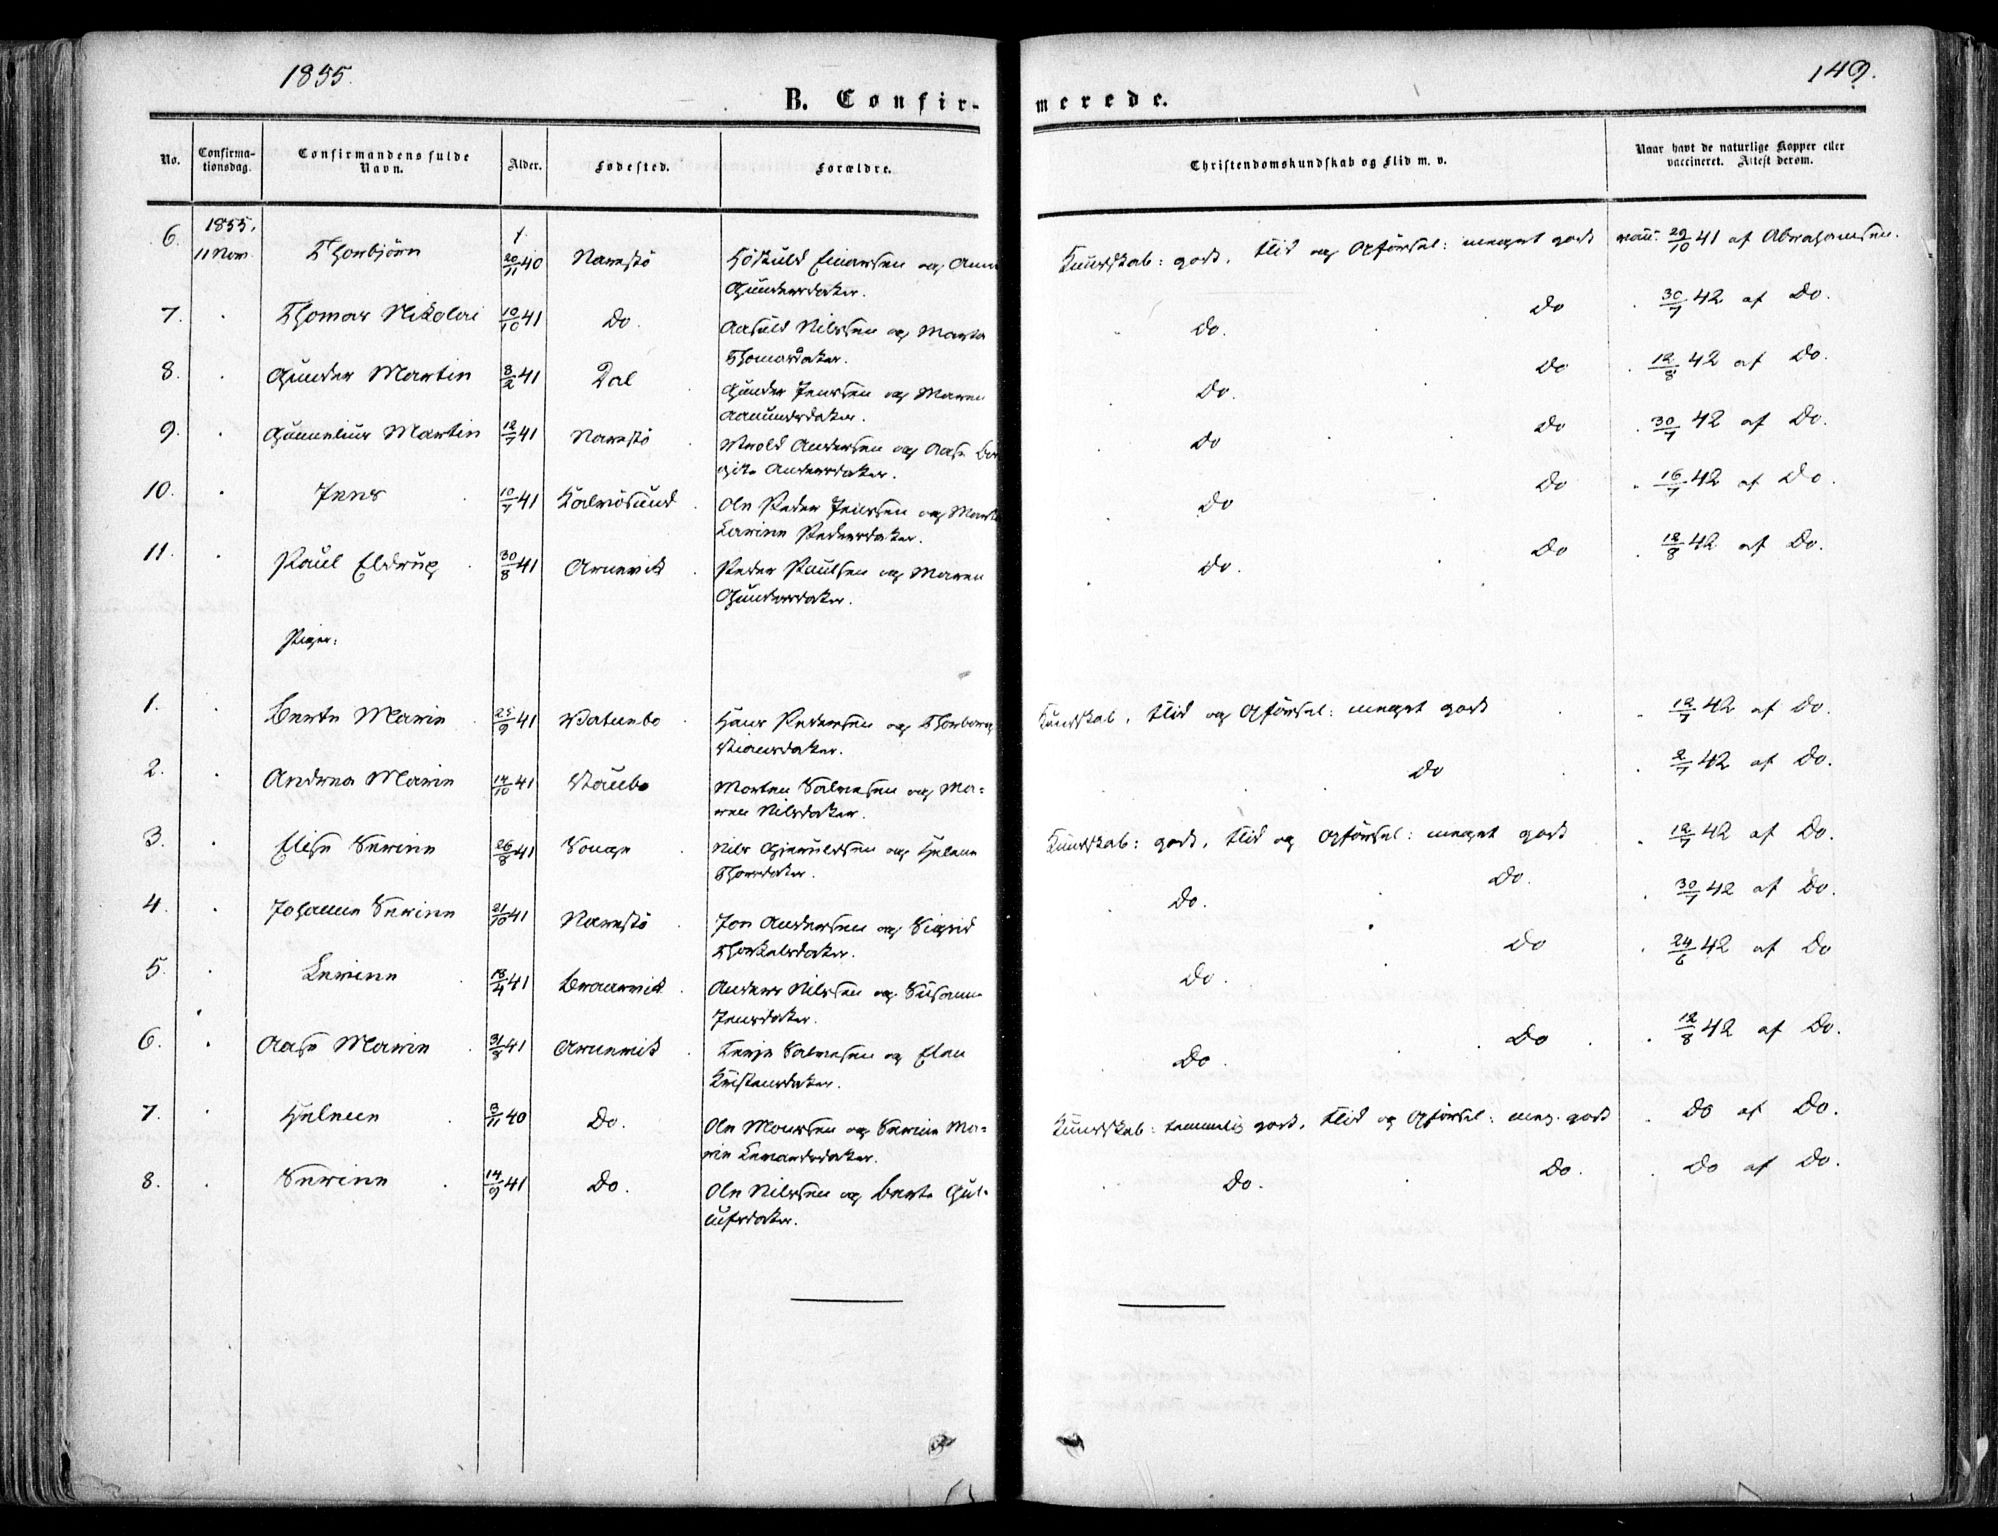 1855.
149.
B. Confir-
merede.
No.
Confirma-
tionsdag.
Confirmandens fulde
Navn.
Alder.
Fødested.
Forældre.
Christendomskundskab og Flid m. v.
Naar havt de naturlige Kopper eller
vaccineret. Attest derom.
1855.
6. 11 Nov. Thorbjörn 20/11 40 Narestö Höskuld Einarsen og Anne
Gundersdater.
Kundskab: godt, Flid og Opförsel: meget godt vacc. 29/10 41 af Abrahamsen.
7. Thomas Nikolai 10/10 41 Do. Aasuld Nilssen og Marta
Thomasdater.
Do. Do 30/7 42 af Do.
8. Gunder Martin 8/2 41 Dal Gunder Jenssen og Maren
Aanundsdater.
Do. Do 12/8 42 af Do.
9. Gunnelius Martin 12/7 41 Narestö Wrold Andersen og Aase
Andersdater.
Do Do 30/7 42 af Do.
10. Jens 10/7 41 Kalvösund Ole Peder Jenssen og
Karine Pedersdater.
Do Do 16/7 42 af Do.
11. Paul Eldrup 30/8 41 Arnevik Peder Paulsen og Maren
Gundersdater.
Do. Do 12/8 42 af Do.
Piger:
1. Berte Marie 25/9 41 Watnebo Hans Pedersen og Thorborg
Stiansdater.
Kundskab, Flid og Opförsel: meget godt 12/7 42 af Do.
2. Andrea Marie 14/10 41 Staubo Morten Salvesen og Ma-
ren Nilsdater.
Do 2/7 42 af Do.
3. Elise Serine 26/8 41 Songe Nils Gjeruldsen og Helene
Thorsdater.
Kundskab: godt, Flid og Opförsel: meget godt 12/7 42 af Do.
4. Johanne Serine 21/10 41 Narestö Jon Andersen og Sigrid
Thorkelsdater.
Do. Do. 30/7 42 af Do.
5. Lerine 18/4 41 Braarvik Anders Nilssen og Susanne
Jensdater.
Do. Do 24/6 42 af Do
6. Aase Marie 31/3 41 Arnevik Terje Salvesen og Elen
Kristensdater.
Do. Do 12/8 42 af Do.
7. Helene 8/11 40 Do. Ole Monssen og Serine Ma-
rie
Kundskab: temmelig godt, Flid og Opförsel: meg. godt Do af Do.
8. Serine 14/9 41 Do. Ole Nilssen og Berte Gul-
lufsdater.
Do. Do. Do af Do.